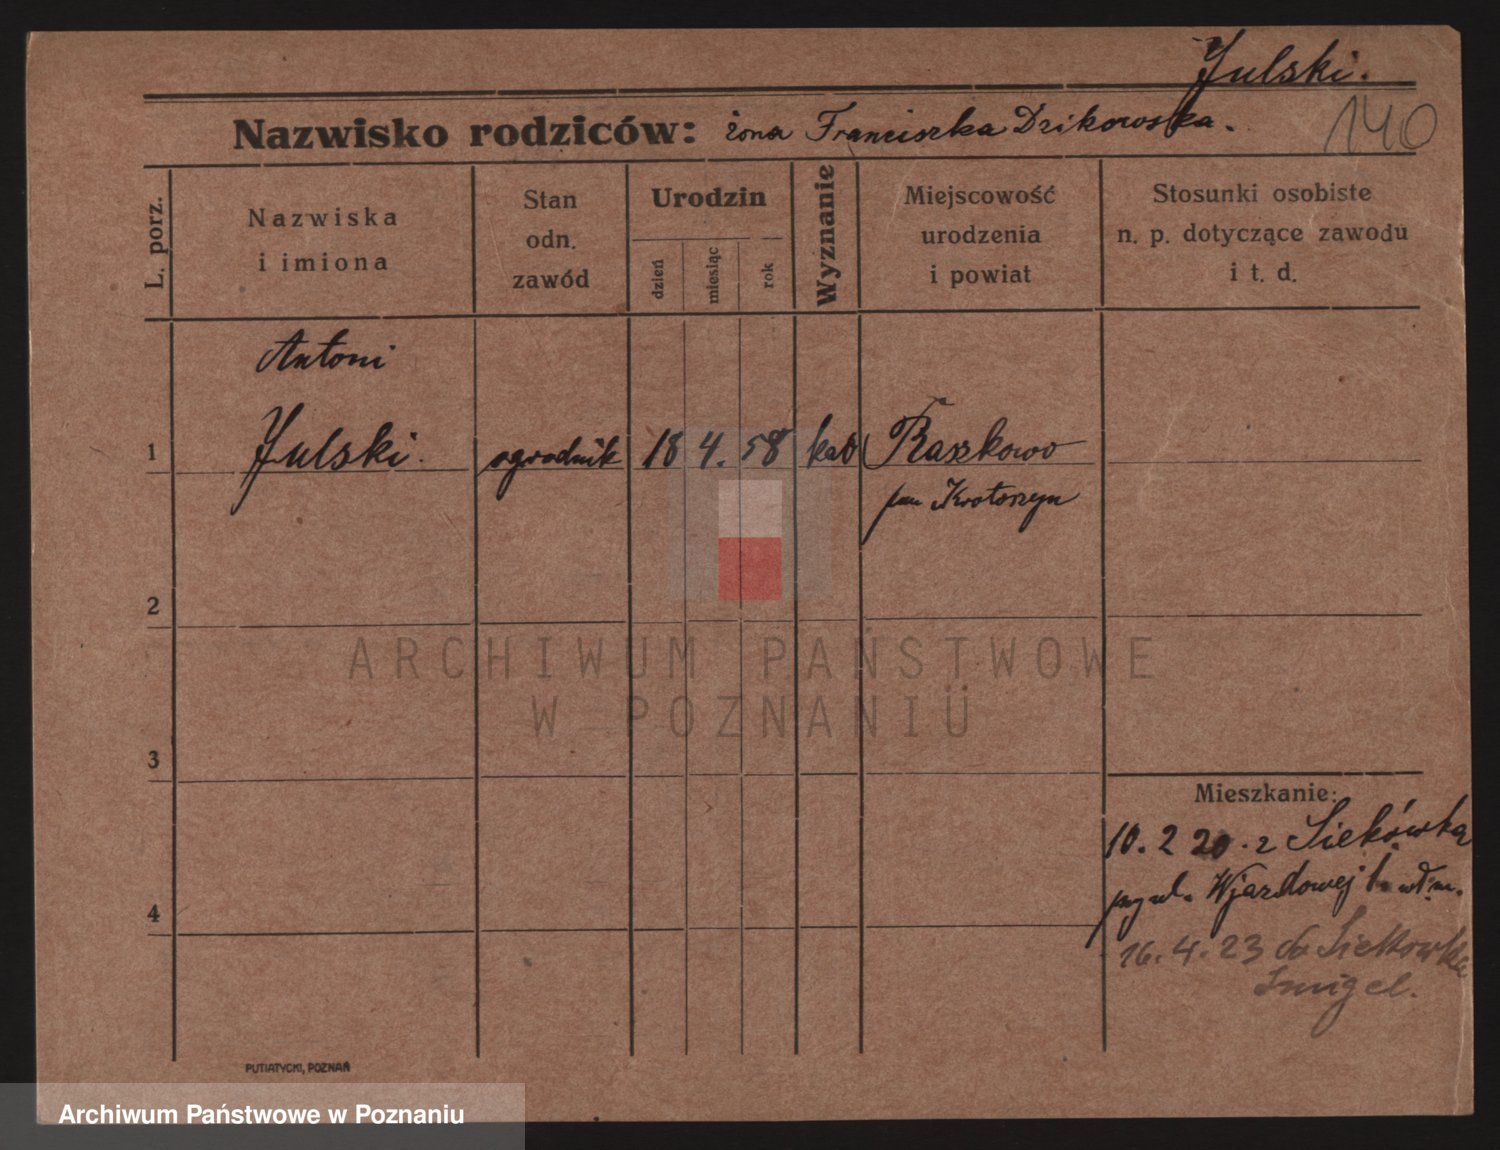 Julski.
140
Nazwisko rodziców: żona Franciszka Dzikowska.
L. porz.
Nazwiska
i imiona
Stan
odn.
zawód
Urodzin
dzień
miesiąc
rok
Wyznanie
Miejscowość
urodzenia
i powiat
Stosunki osobiste
n. p. dotyczące zawodu
i t. d.
Antoni
1 Julski. ogrodnik 18 4. 58 kat Raszkowo
pow Krotoszyn
2
ARCHIWUM PAŃSTWOWE
W POZNANIU
3
Mieszkanie:
10. 2 20. z Siekówka
przy ul. Wjazdowej
4
16. 4. 23 do Siekowka
Smigel.
PUTIATYCKI, POZNAŃ
Archiwum Państwowe w Poznaniu